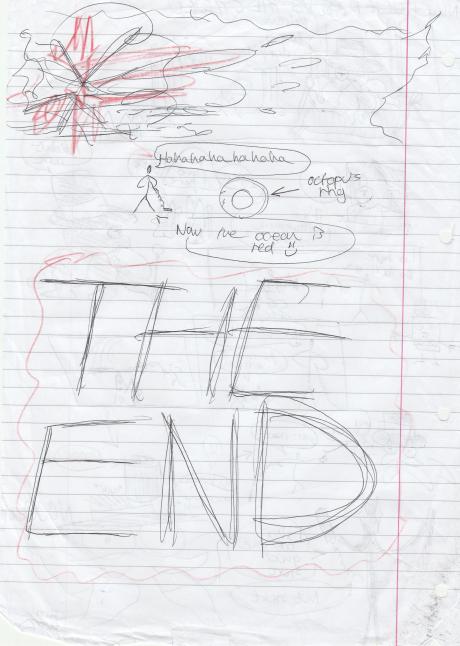 Hahahahahahaha
octopus
ring
Now the ocean is
red
THE
END